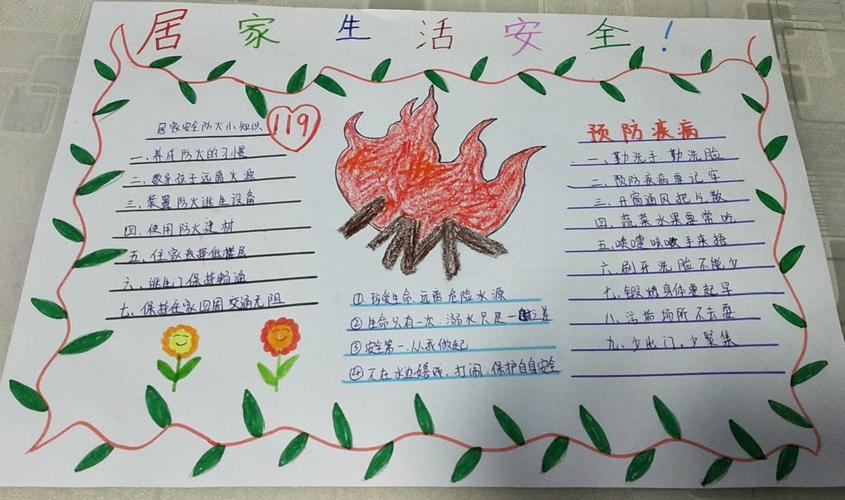 居家生活安全!
居家安全防火小知识
119
一、养成防火的习惯
二、教导孩子远离火源
三、装置防火逃生设备
四、使用防火建材
五、住家选择低楼层
六、逃生门保持畅通
七、保持住家四周交通无阻
①珍爱生命.远离危险水源
②生命只有一次.溺水只是一
③安全第一.从我做起
④不在水边嬉戏.打闹.保护自身安全
预防疾病
一、勤洗手 勤洗脸
二、预防疾病要记牢
三、开窗通风把点散
四、蔬菜水果要常吃
五、喷嚏咳嗽手来捂
六、刷牙洗脸不能少
七、锻炼身体要起早
八、污垢场所不去耍
九、少出门,少聚集